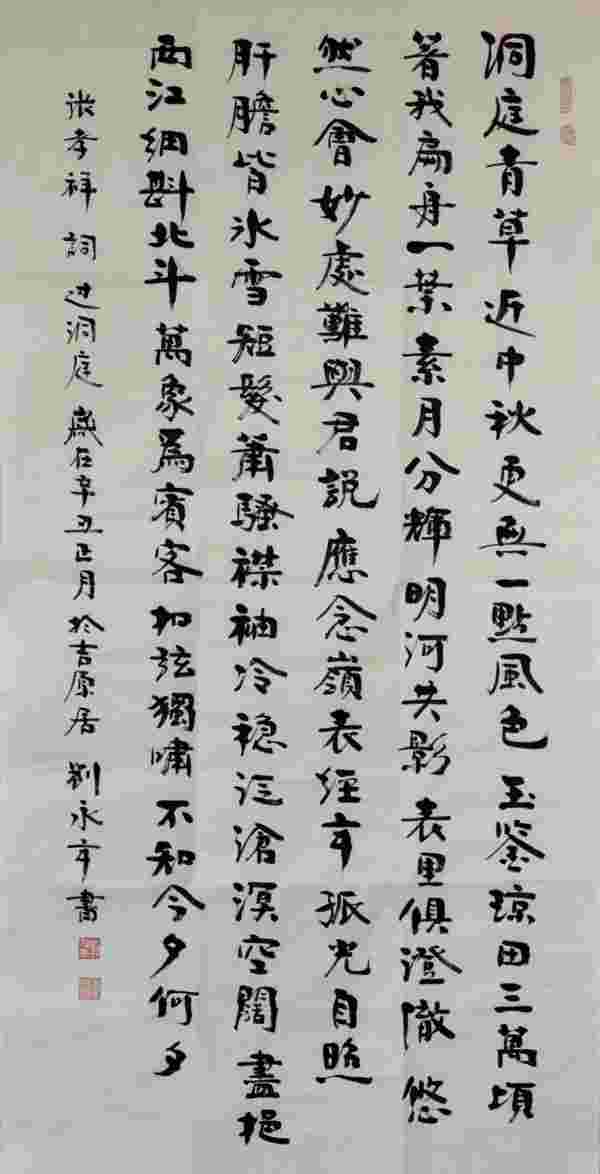 洞庭青草近中秋更無一點風色玉鉴琼田三萬頃
著我扁舟一葉素月分輝明河共影表里俱澄澈悠
然心會妙處難與君説應念嶺表經年孤光自照
肝膽皆冰雪短髮蕭騷襟袖冷穏泛滄溟空闊盡挹
西江細斟北斗萬象爲賓客扣弦獨嘯不知今夕何夕
张孝祥詞过洞庭歲在辛丑正月於吉原居劉永年書